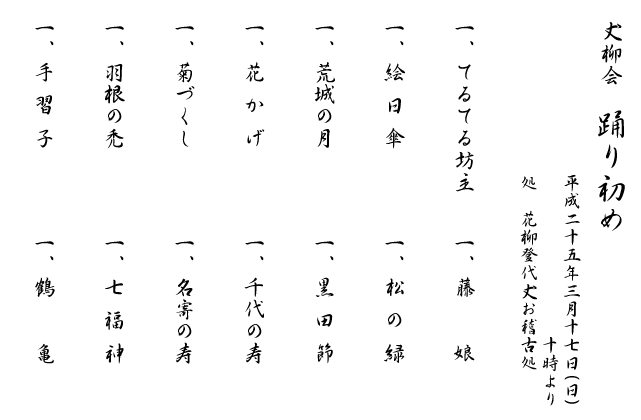 丈柳会 踊り初め
平成二十五年三月十七日(日)
十時より
処 花柳登代丈お稽古処
一、てるてる坊主
一、絵日傘
一、荒城の月
一、花かげ
一、菊づくし
一、羽根の禿
一、手習子
一、藤娘
一、松の緑
一、黒田節
一、千代の寿
一、名寄の寿
一、七福神
一、鶴亀